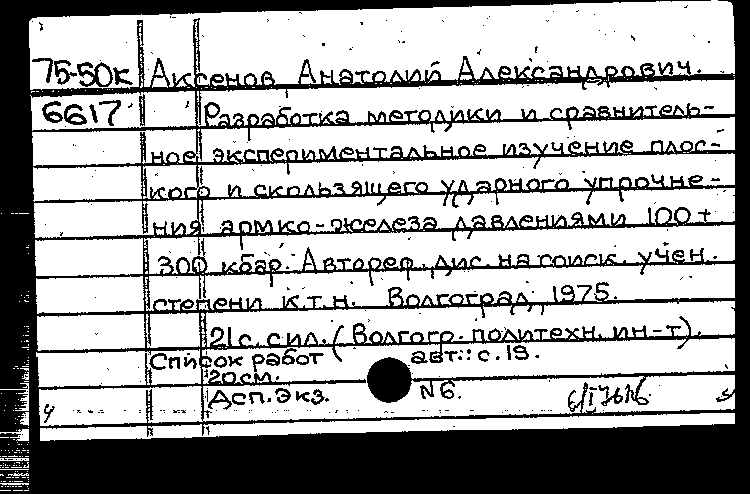 75-50к Аксенов Анатолий Александрович.
6617 Разработка методики и сравнитель-
ное экспериментальное изучение плос-
кого и скользящего ударного упрочне-
ния армко-железа давлениями 100÷
300 кбар. Автореф. дис. на соиск. учен.
степени к.т.н. Волгоград, 1975.
21с. с ил. (Волгогр. политехн. ин-т).
Список работ авт.: с.19.
20см.
Дсп. Экз. N 6.